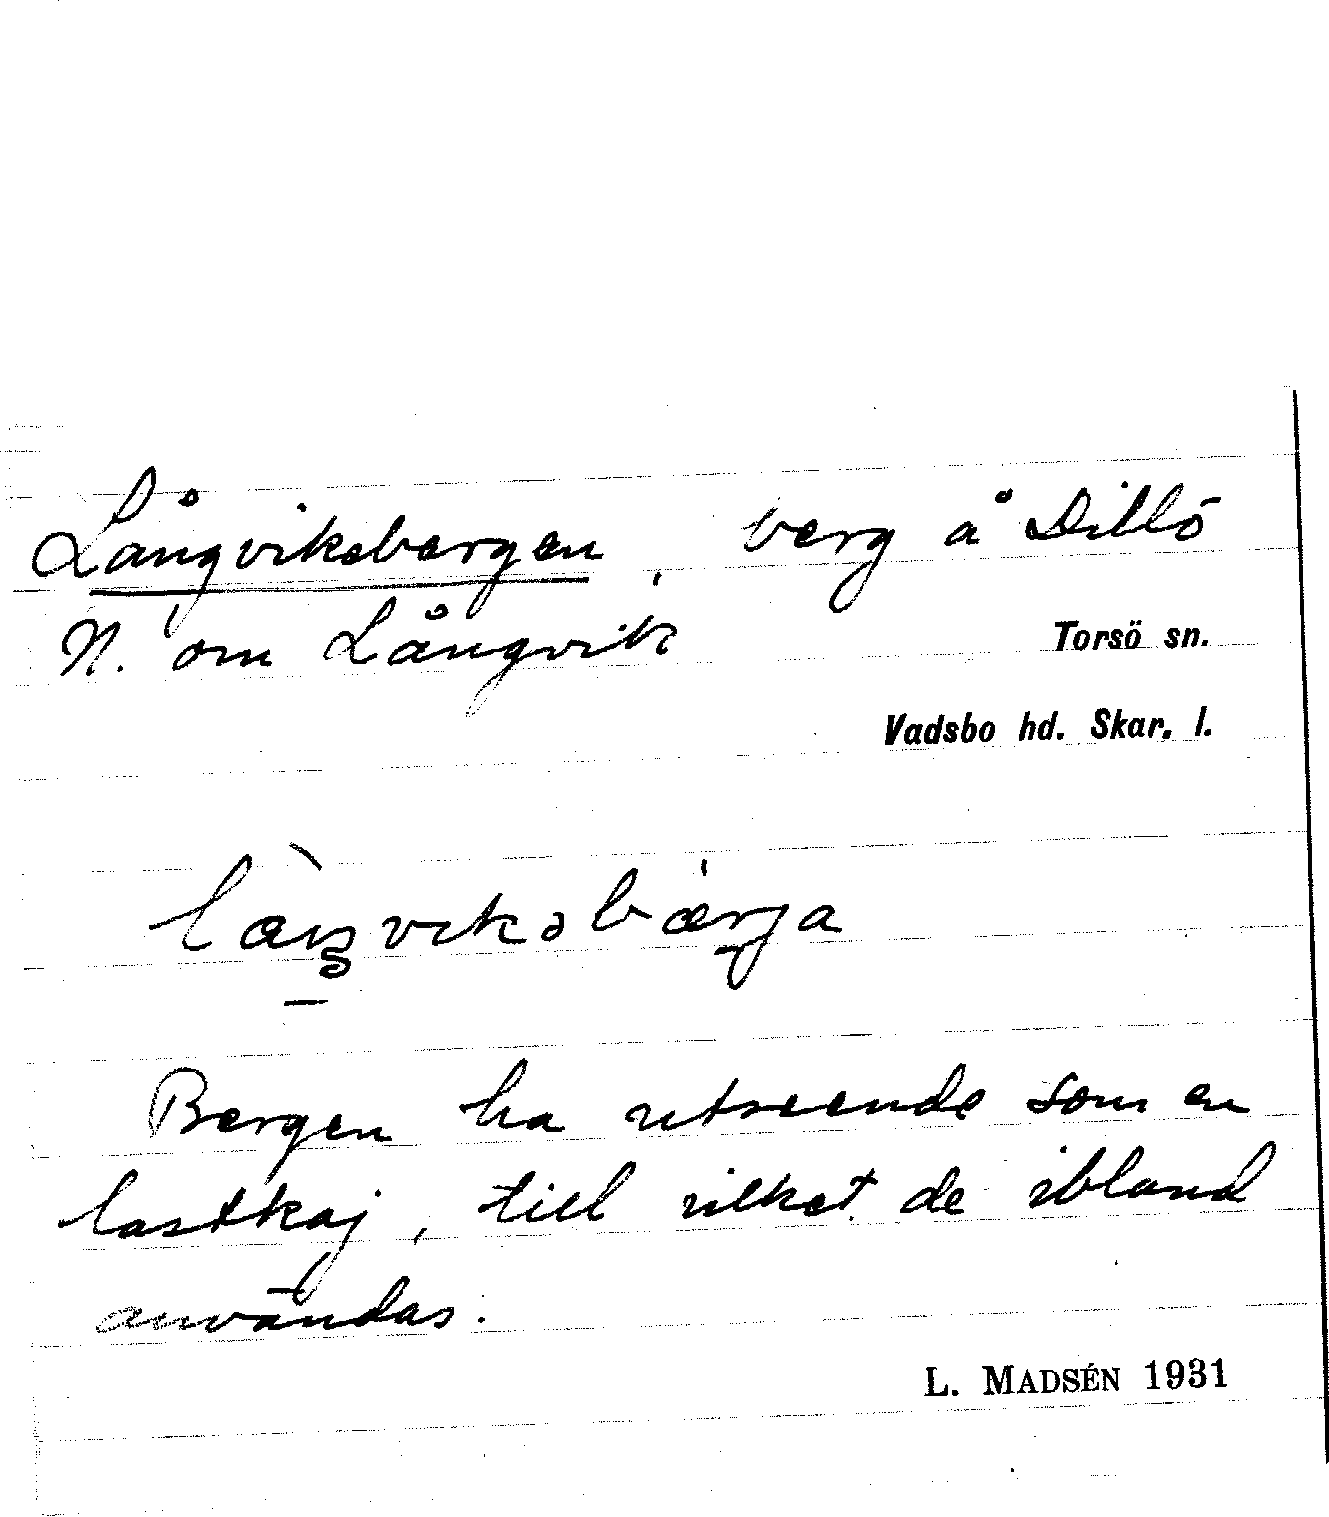 Långviksbergen, berg å Dillö
N. om Långvik Torsö sn.
Vadsbo hd. Skar. l.
Bergen ha utseende som en
lastkaj, till vilket de ibland
användas.
L. MADSÉN 1931